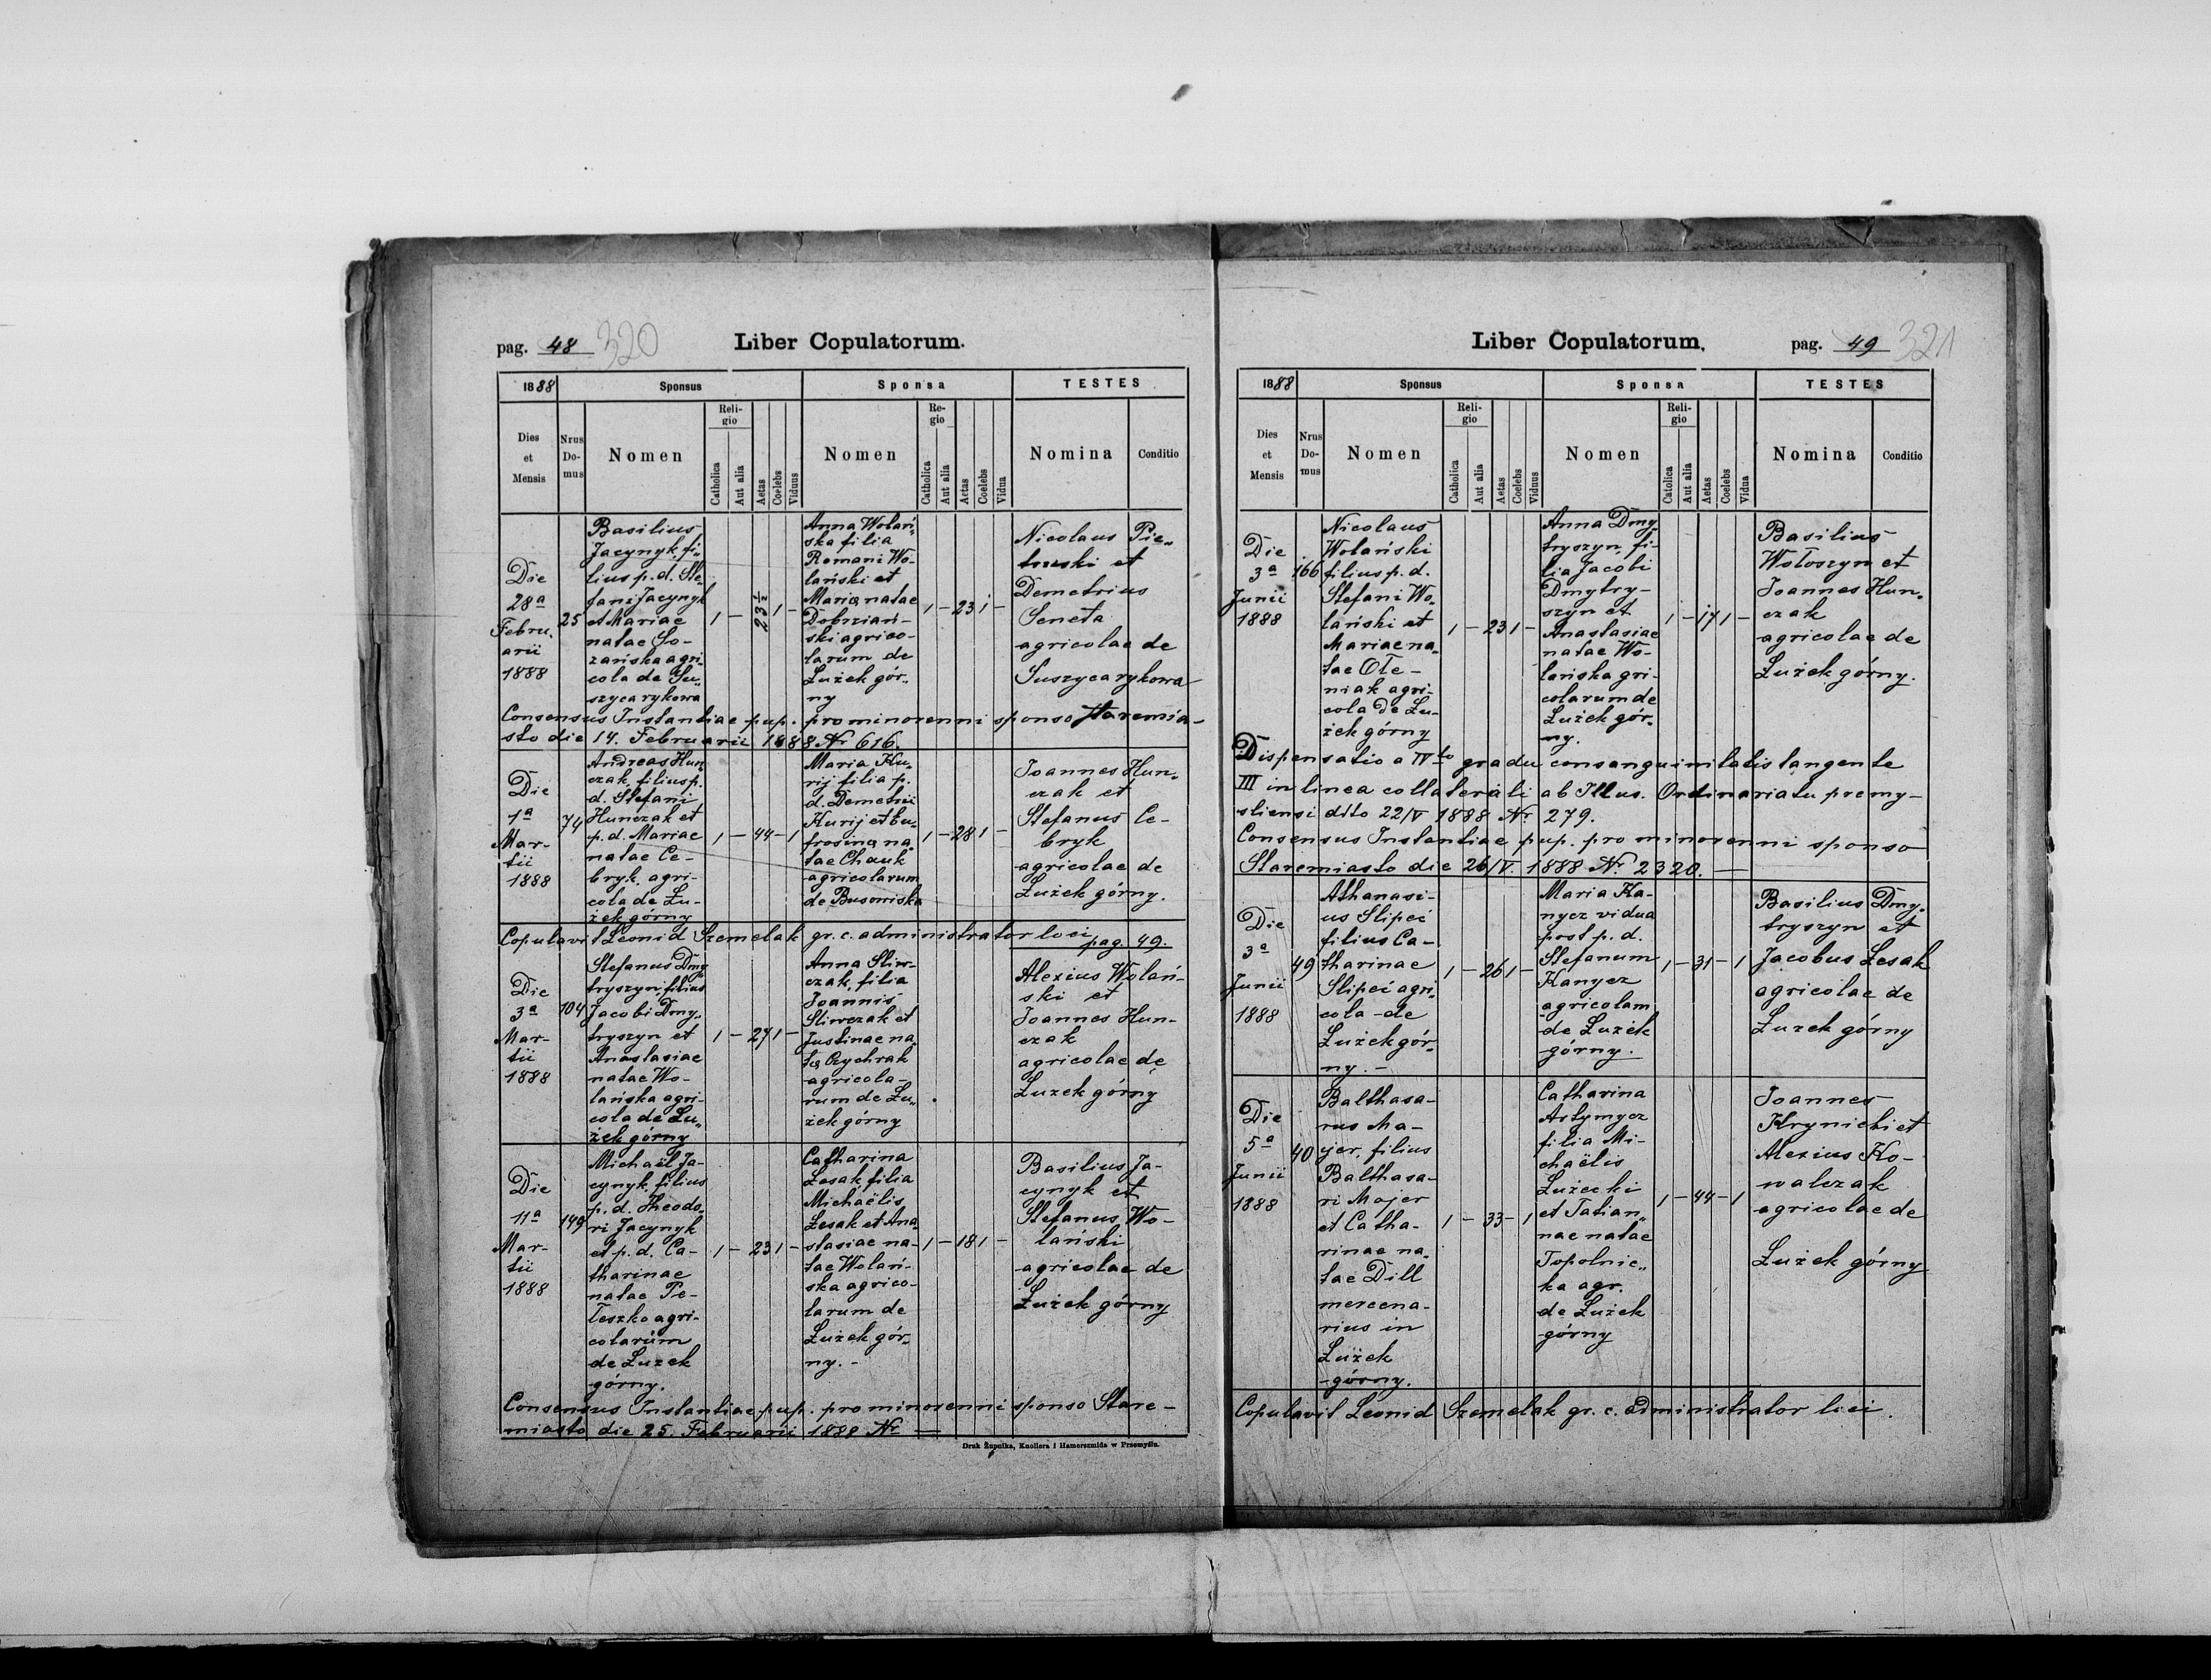 pag. 48 320 Liber Copulatorum.
1888 Sponsus Sponsa TESTES
Dies et Mensis Nrus Domus Nomen Religio Catholica Aut alia Aetas Coelebs Viduus Nomen Regio Catholica Aut alia Aetas Coelebs Vidua Nomina Conditio
Die
28a
Febru.
arii
1888
25
Basilius
Jacynyk, fi„
lius p. d. Ste„
fani Jacynyk
et Mariae
natae So-
zańska agri„
cola de Su„
szyca rykowa
1 – 23½ 1 –
Anna Wolań„
ska filia
Romani Wo-
lański et
Mariae natae
Dobrziań-
ski agrico-
larum de
Łużek gór„
ny
1 – 23 1 –
Nicolaus Pie„
truski et
Demetrius
Seneta
agricolae de
Suszyca rykowa
Consensus Instantiae pup. pro minorenni sponso Staremia-
sto die 14. Februarii 1888 Nr 616.
Die
1a
Mar-
tii
1888
74
Andreas Hun„
czak, filius p.
d. Stefani
Hunczak et
p. d. Mariae
natae Ce-
bryk, agri-
cola de Łu-
żek górny
1 – 44 – 1
Maria Ku„
rij filia p.
d. Demetrii
Kurij et Eu„
frosina na„
tae Chauk
agricolarum
de Busowiska
1 – 28 1 –
Joannes Hun„
czak et
Stefanus Ce-
bryk
agricolae de
Łużek górny.
Copulavit Leonid Szemelak gr. c. administrator loci pag. 49.
Die
3a
Mar-
tii
1888
104
Stefanus Dmy„
tryszyn, filius
Jacobi Dmy„
tryszyn et
Anastasiae
natae Wo-
lańska agri-
cola de Łu„
żek górny
1 – 27 1 –
Anna Sliw-
czak, filia
Joannis
Sliwczak et
Justinae na„
ta Ozychrak
agricola-
rum de Łu„
żek górny
Alexius Wolań-
ski et
Joannes Hun-
czak
agricolae de
Łużek górny
Die
11a
Mar-
tii
1888
149
Michaël Ja-
cynyk, filius
p. d. Theodo„
ri Jacynyk
et p. d. Ca-
tharinae
natae Pe-
łeszko agri-
colarum
de Łużek
górny.
1 – 23 1 –
Catharina
Lesak, filia
Michaëlis
Lesak et Ana„
stasiae na-
tae Wolań-
ska agrico-
larum de
Łużek gór„
ny. –
1 – 18 1 –
Basilius Ja-
cynyk et
Stefanus Wo-
lański
agricolae de
Łużek górny
Consensus Instantiae pup. pro minorenni sponso Stare-
miasto die 25. Februarii 1888 Nr —
Druk Żupnika, Knollera i Hamerszmida w Przemyślu.
Liber Copulatorum. pag. 49 321
1888 Sponsus Sponsa TESTES
Dies et Mensis Nrus Domus Nomen Religio Catholica Aut alia Aetas Coelebs Viduus Nomen Religio Catolica Aut alia Aetas Coelebs Vidua Nomina Conditio
Die
3a
Junii
1888
166
Nicolaus
Wolański
filius p. d.
Stefani Wo„
lański et
Mariae na„
tae Ołe-
niak agri-
cola de Łu-
żek górny
1 – 23 1 –
Anna Dmy„
tryszyn, fi-
lia Jacobi
Dmytry-
szyn et
Anastasiae
natae Wo-
lańska gri-
colarum de
Łużek gór„
ny.
1 – 17 1 –
Basilius
Wołoszyn et
Joannes Hun„
czak
agricolae de
Łużek górny.
Dispensatio a IVto gradu consanguinitatis tangente
III in linea collaterali ab Illus. Ordinariatu premy-
sliensi dtto 22/V 1888 Nr. 279.
Consensus Instantiae pup. pro minorenni sponso
Staremiasto die 26/V. 1888 Nr. 2320. —
Die
3a
Junii
1888
49
Athanasi-
us Slipci
filius Ca-
tharinae
Slipci agri„
cola de
Łużek gór„
ny. –
1 – 26 1 –
Maria Ka-
nycz vidua
post p. d.
Stefanum
Kanycz
agricolam
de Łużek
górny.
1 – 31 – 1
Basilius Dmy„
tryszyn et
Jacobus Lesak
agricolae de
Łużek górny
Die
5a
Junii
1888
40
Balthasa-
rus Ma-
jer, filius
Balthasa-
ri Majer
et Catha-
rinae na„
tae Dill
mercena-
rius in
Łużek
górny.
1 – 33 – 1
Catharina
Artymycz
filia Mi-
chaëlis
Łużecki
et Tatian„
nae natae
Topolnic„
ka agr.
de Łużek
górny
1 – 44 – 1
Joannes
Krynicki et
Alexius Ko-
walczak
agricolae de
Łużek górny
Copulavit Leonid Szemelak gr. c. administrator loci.